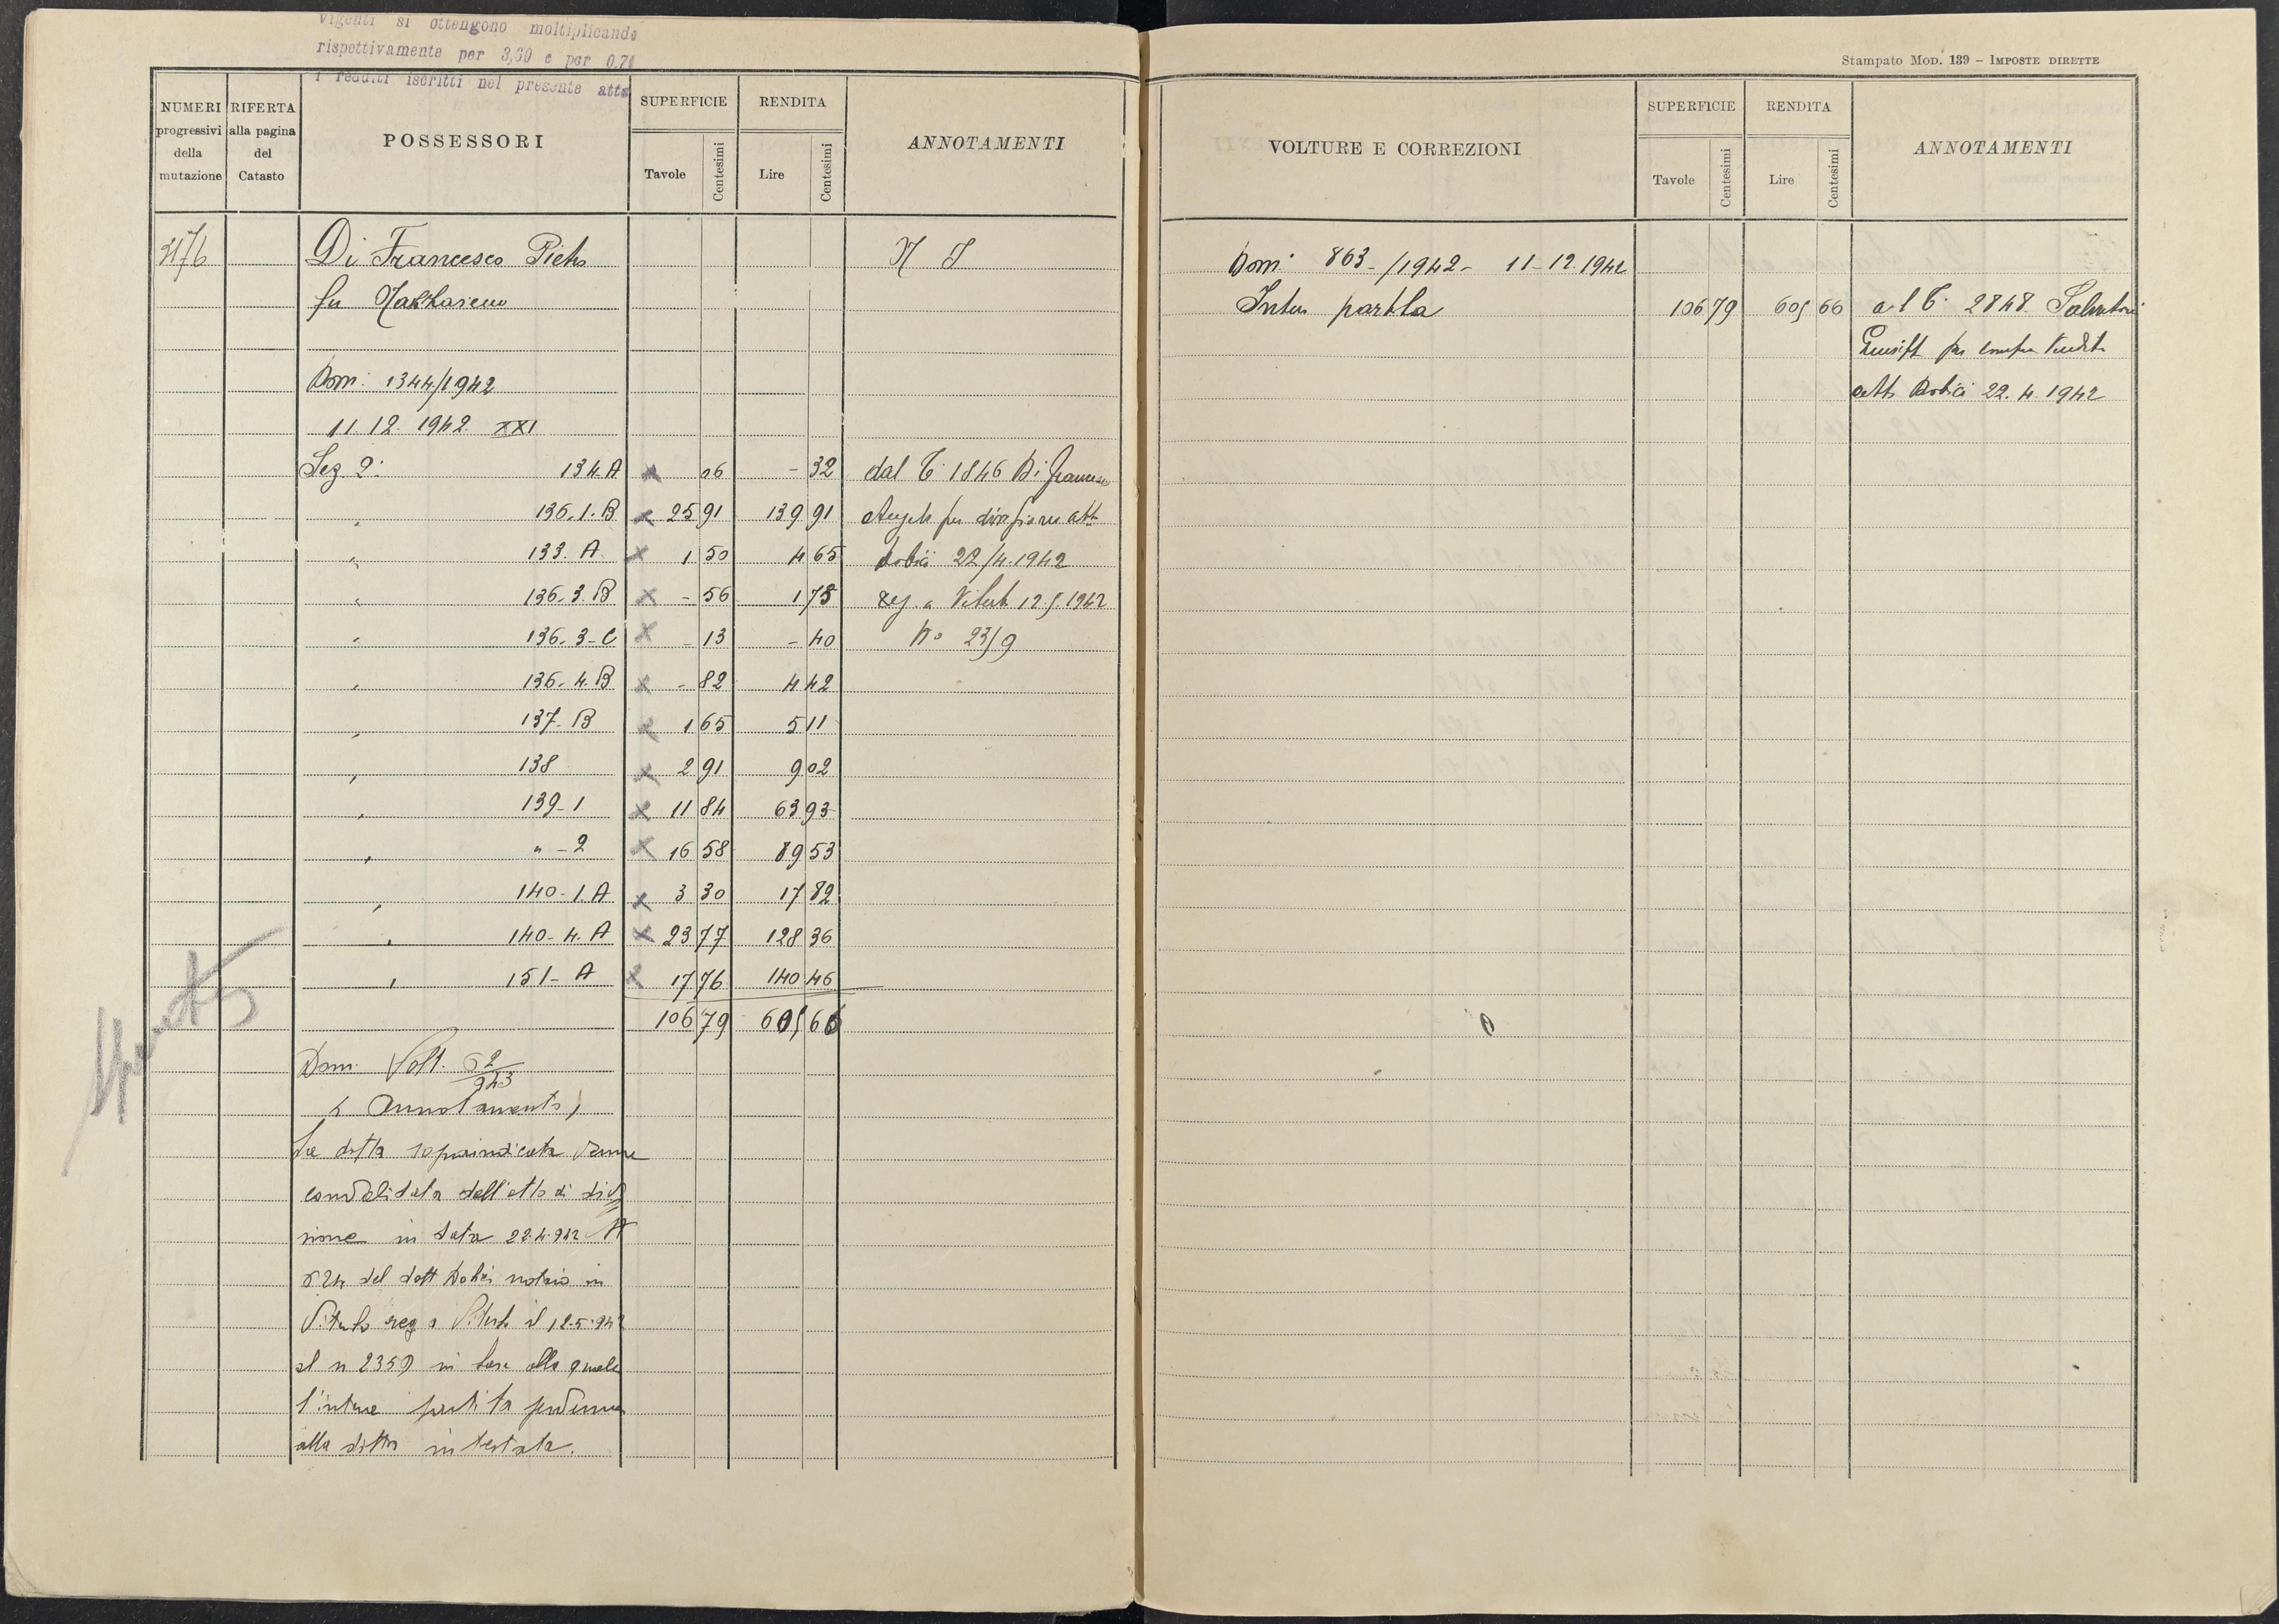 Vigenti si ottengono moltiplicando
rispettivamente per 3,60 e per 0,70
i redditi iscritti nel presente atto
NUMERI progressivi della mutazione
RIFERTA alla pagina del Catasto
POSSESSORI
SUPERFICIE
Tavole Centesimi
RENDITA
Lire Centesimi
ANNOTAMENTI
Di Francesco Pietro
fu
Dom: 1344/1942
11.12.1942 XXI
Sez 2: 134.A × 06 - 32 dal C. 1846 Di Francesco
" 136.1.B × 25 91 139 91 Angelo per divisione atto
" 133.A × 1 50 4 65 Dobici 22/4.1942
" 136.3.B × - 56 1 75 reg. a Viterbo 12.5.1942
" 136.3-C × - 13 - 40 No 2359
" 136.4.B × - 82 4 42
" 137-B × 1 65 5 11
" 138 × 2 91 9 02
" 139-1 × 11 84 63 93
" " -2 × 16 58 89 53
" 140-1.A × 3 30 17 82
" 140-4.A × 23 77 128 36
" 151-A × 17 76 140 46
106 79 605 66
Dom. Volt. 62/943
Annotamento)
La ditta sopraindicata venne
convalidata dall'atto di divi
sione in data 22.4.942 N
524 del dott Dobici notaio in
Viterbo reg a Viterbo il 12.5.942
al n 2359 in base alla quale
l'intera partita pervenne
alla ditta intestata.
Stampato MOD. 139 – IMPOSTE DIRETTE
VOLTURE E CORREZIONI
SUPERFICIE
Tavole Centesimi
RENDITA
Lire Centesimi
ANNOTAMENTI
Dom: 863-/1942- 11-12.1942
Intera partita 106 79 605 66 al C. 2848 Salvatori
per compra vendita
atto Dobici 22.4.1942